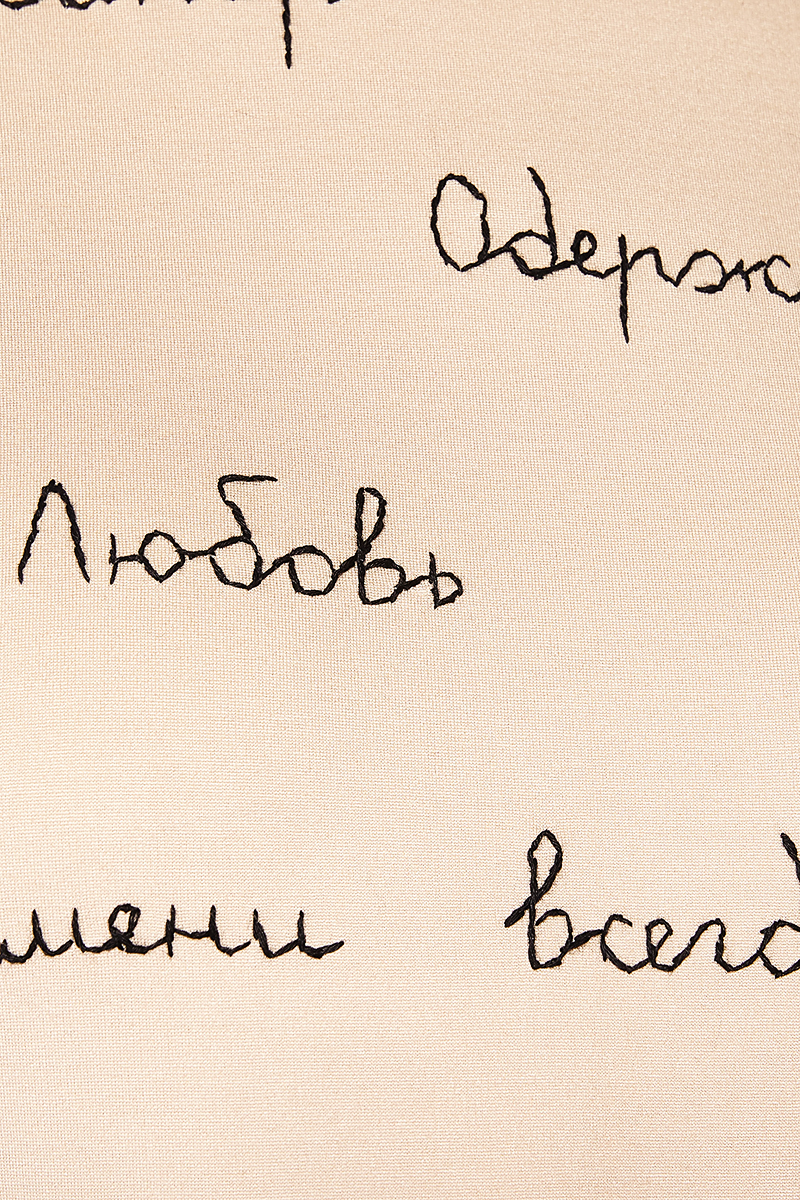 Одерж
Любовь
мени всегд